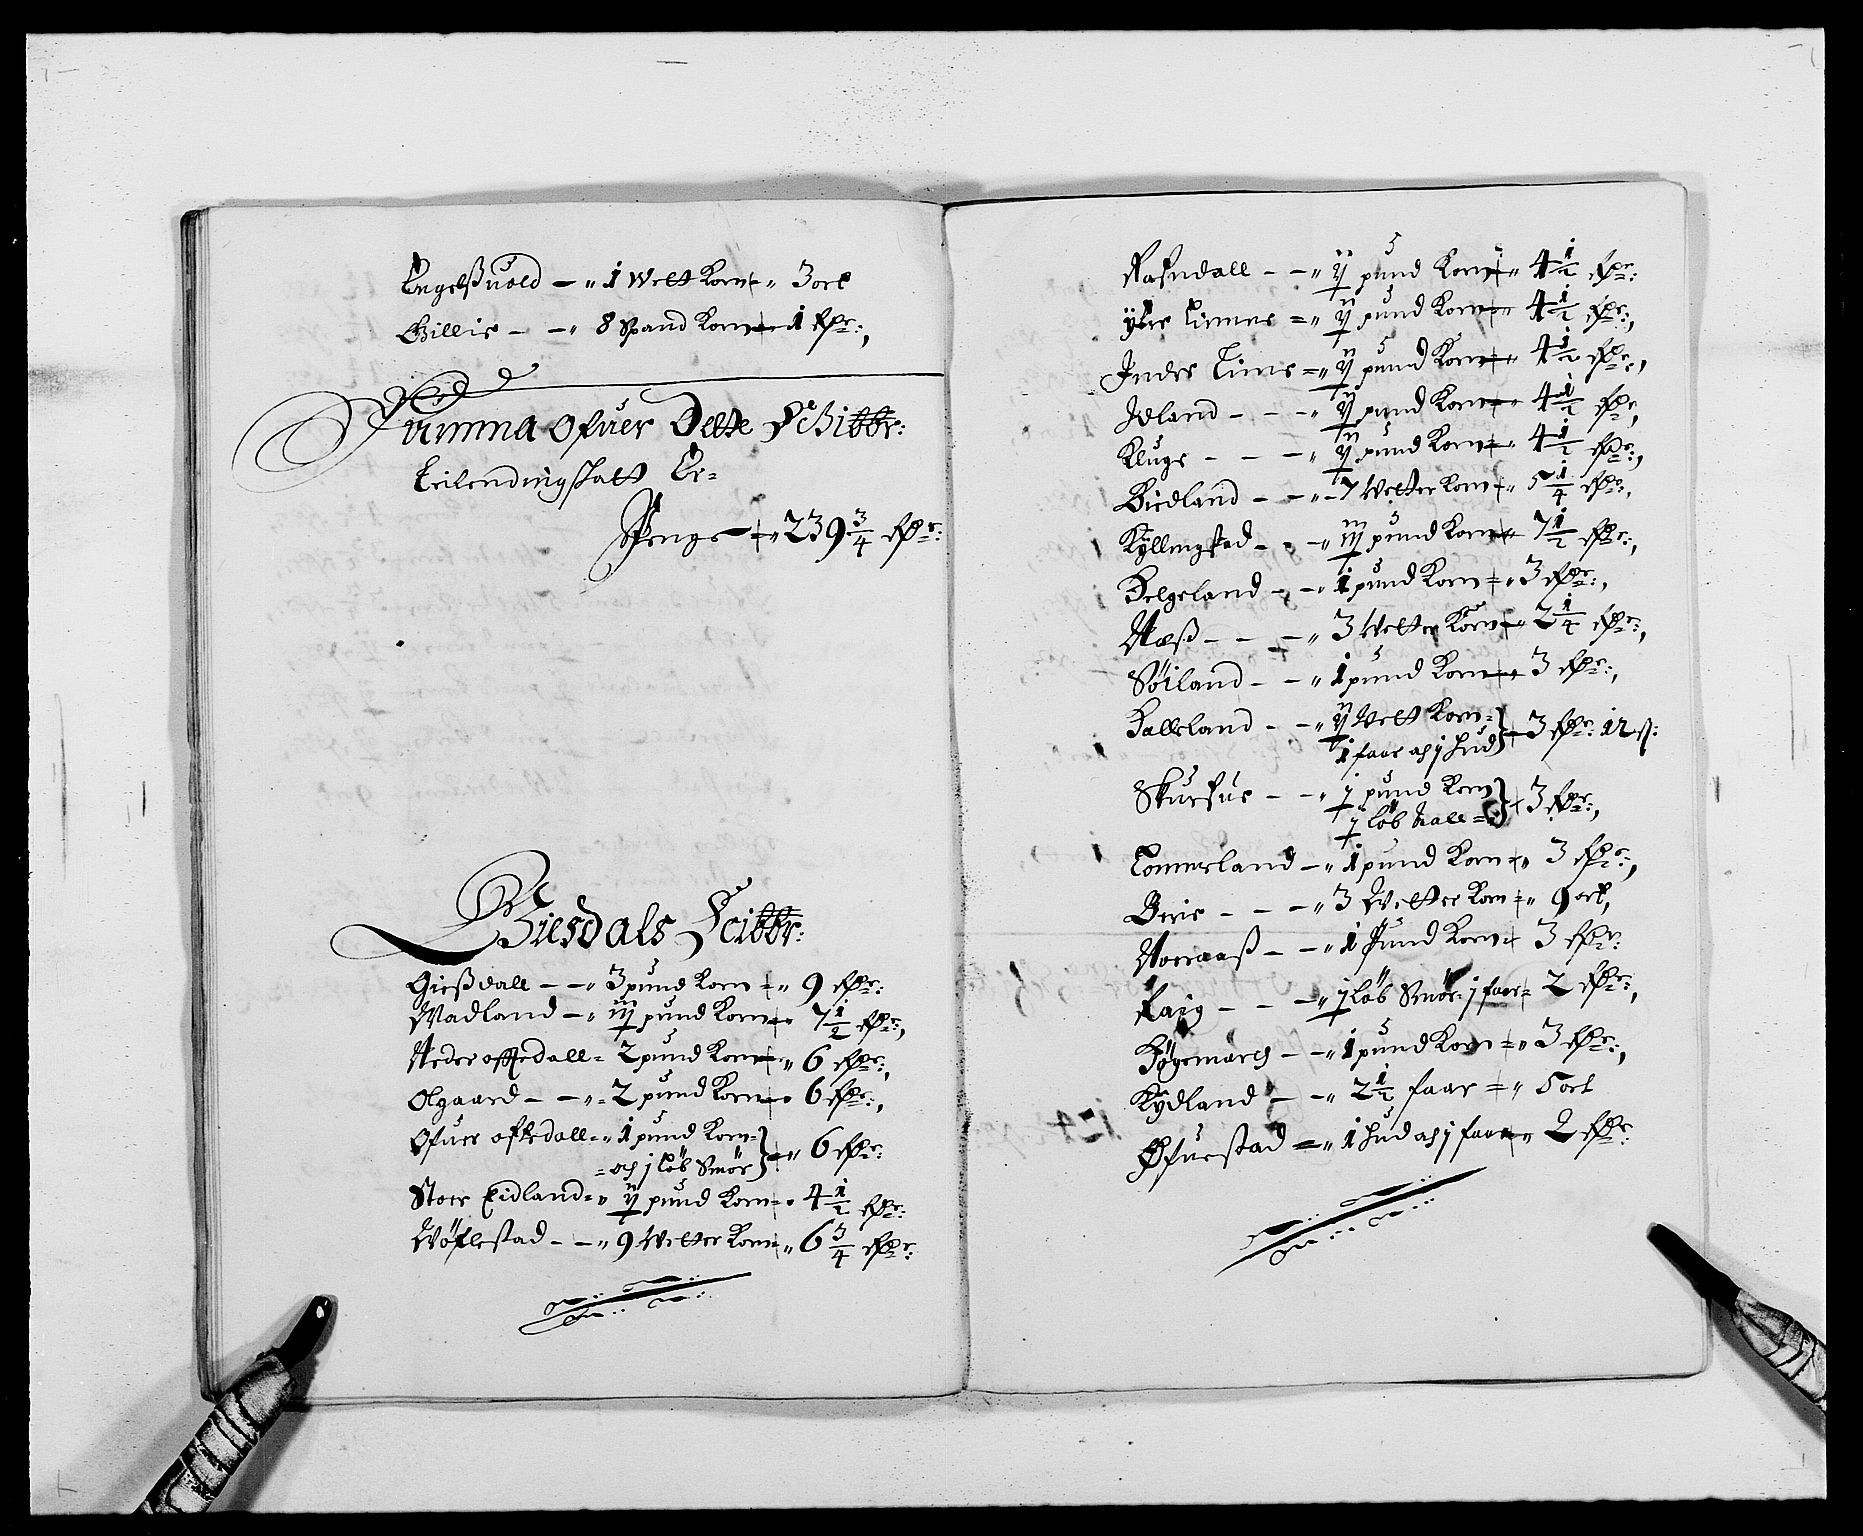 Engelßuold — " 1 Wett Korn " 3 ort
Gillie — — " 8 Spand Korn 1 rdr:,
Summa ofuer Dette Schibbr:
Leilendingskatt Er=
Penge — " 239 3/4 rdr:
Giesdals Scibbr:
Gießdall — — " 3 pund Korn = " 9 rdr:
Madland — " iij pund Korn " 7 1/2 rdr:,
Neder offtedall = 2 pund Korn " 6 rdr:,
Olgaard — — " = 2 pund Korn " 6 rdr:,
Ofuer oftedall = " 1 pund Korn =
= och j løb Smør } " 6 rdr:
Stoer Eidland = " ij pund Korn = " 4 1/2 rdr:
Wøflestad — — " 9 Wetter Korn " 6 3/4 rdr:
Rafndall — — " ij pund Korn " 4 1/2 rdr:
Ytre Limme = " ij pund Korn " 4 1/2 rdr:,
Indre Lime = " ij pund Korn " 4 1/2 rdr:,
Idland — — — " ij pund Korn " 4 1/2 rdr,
Kluge — — — " ij pund Korn " 4 1/2 rdr:,
Birdland — — " 7 Wetter Korn " 5 1/4 rdr:,
Kyllingstad — — " iij pund Korn 7 1/2 rdr:,
Helgeland — — " 1 pund Korn = " 3 rdr:,
Næß — — — " 3 Wetter Korn " 2 1/4 rdr:,
Søiland — — " 1 pund Korn 3 rdr:,
Halleland — — " ij Wett Korn =
1 faar och j Hud } 3 rdr: 12 s:
Skurfue — — " j pund Korn
j løb hall = } 3 rdr:,
Tommerland — " 1 pund Korn " 3 rdr:,
Berie — — — " 3 Wetter Korn = " 9 ort,
Noeraaß — — " 1 Pund Korn 3 rdr:
Raig — — — " j løb Smør = j faar = 2 rdr:,
Føgemarch — — " 1 pund Korn = " 3 rdr:,
Kydland — — " 2 1/2 faar = " 5 ort
Øfuestad = " 1 Hud och j faar " 2 rdr: